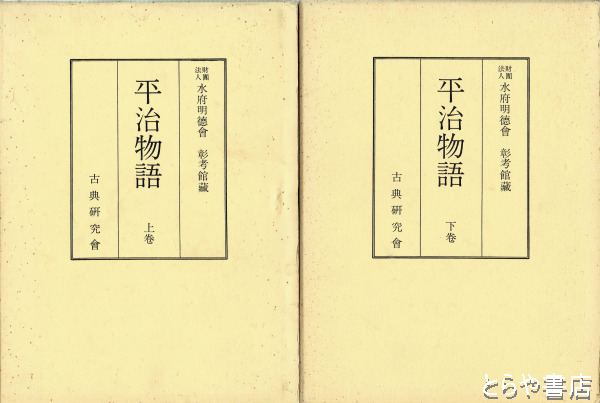 財團
法人
水府明德會 彰考館藏
平治物語
上卷
古典研究會
財團
法人
水府明德會 彰考館藏
平治物語
下卷
古典研究會
とらや書店